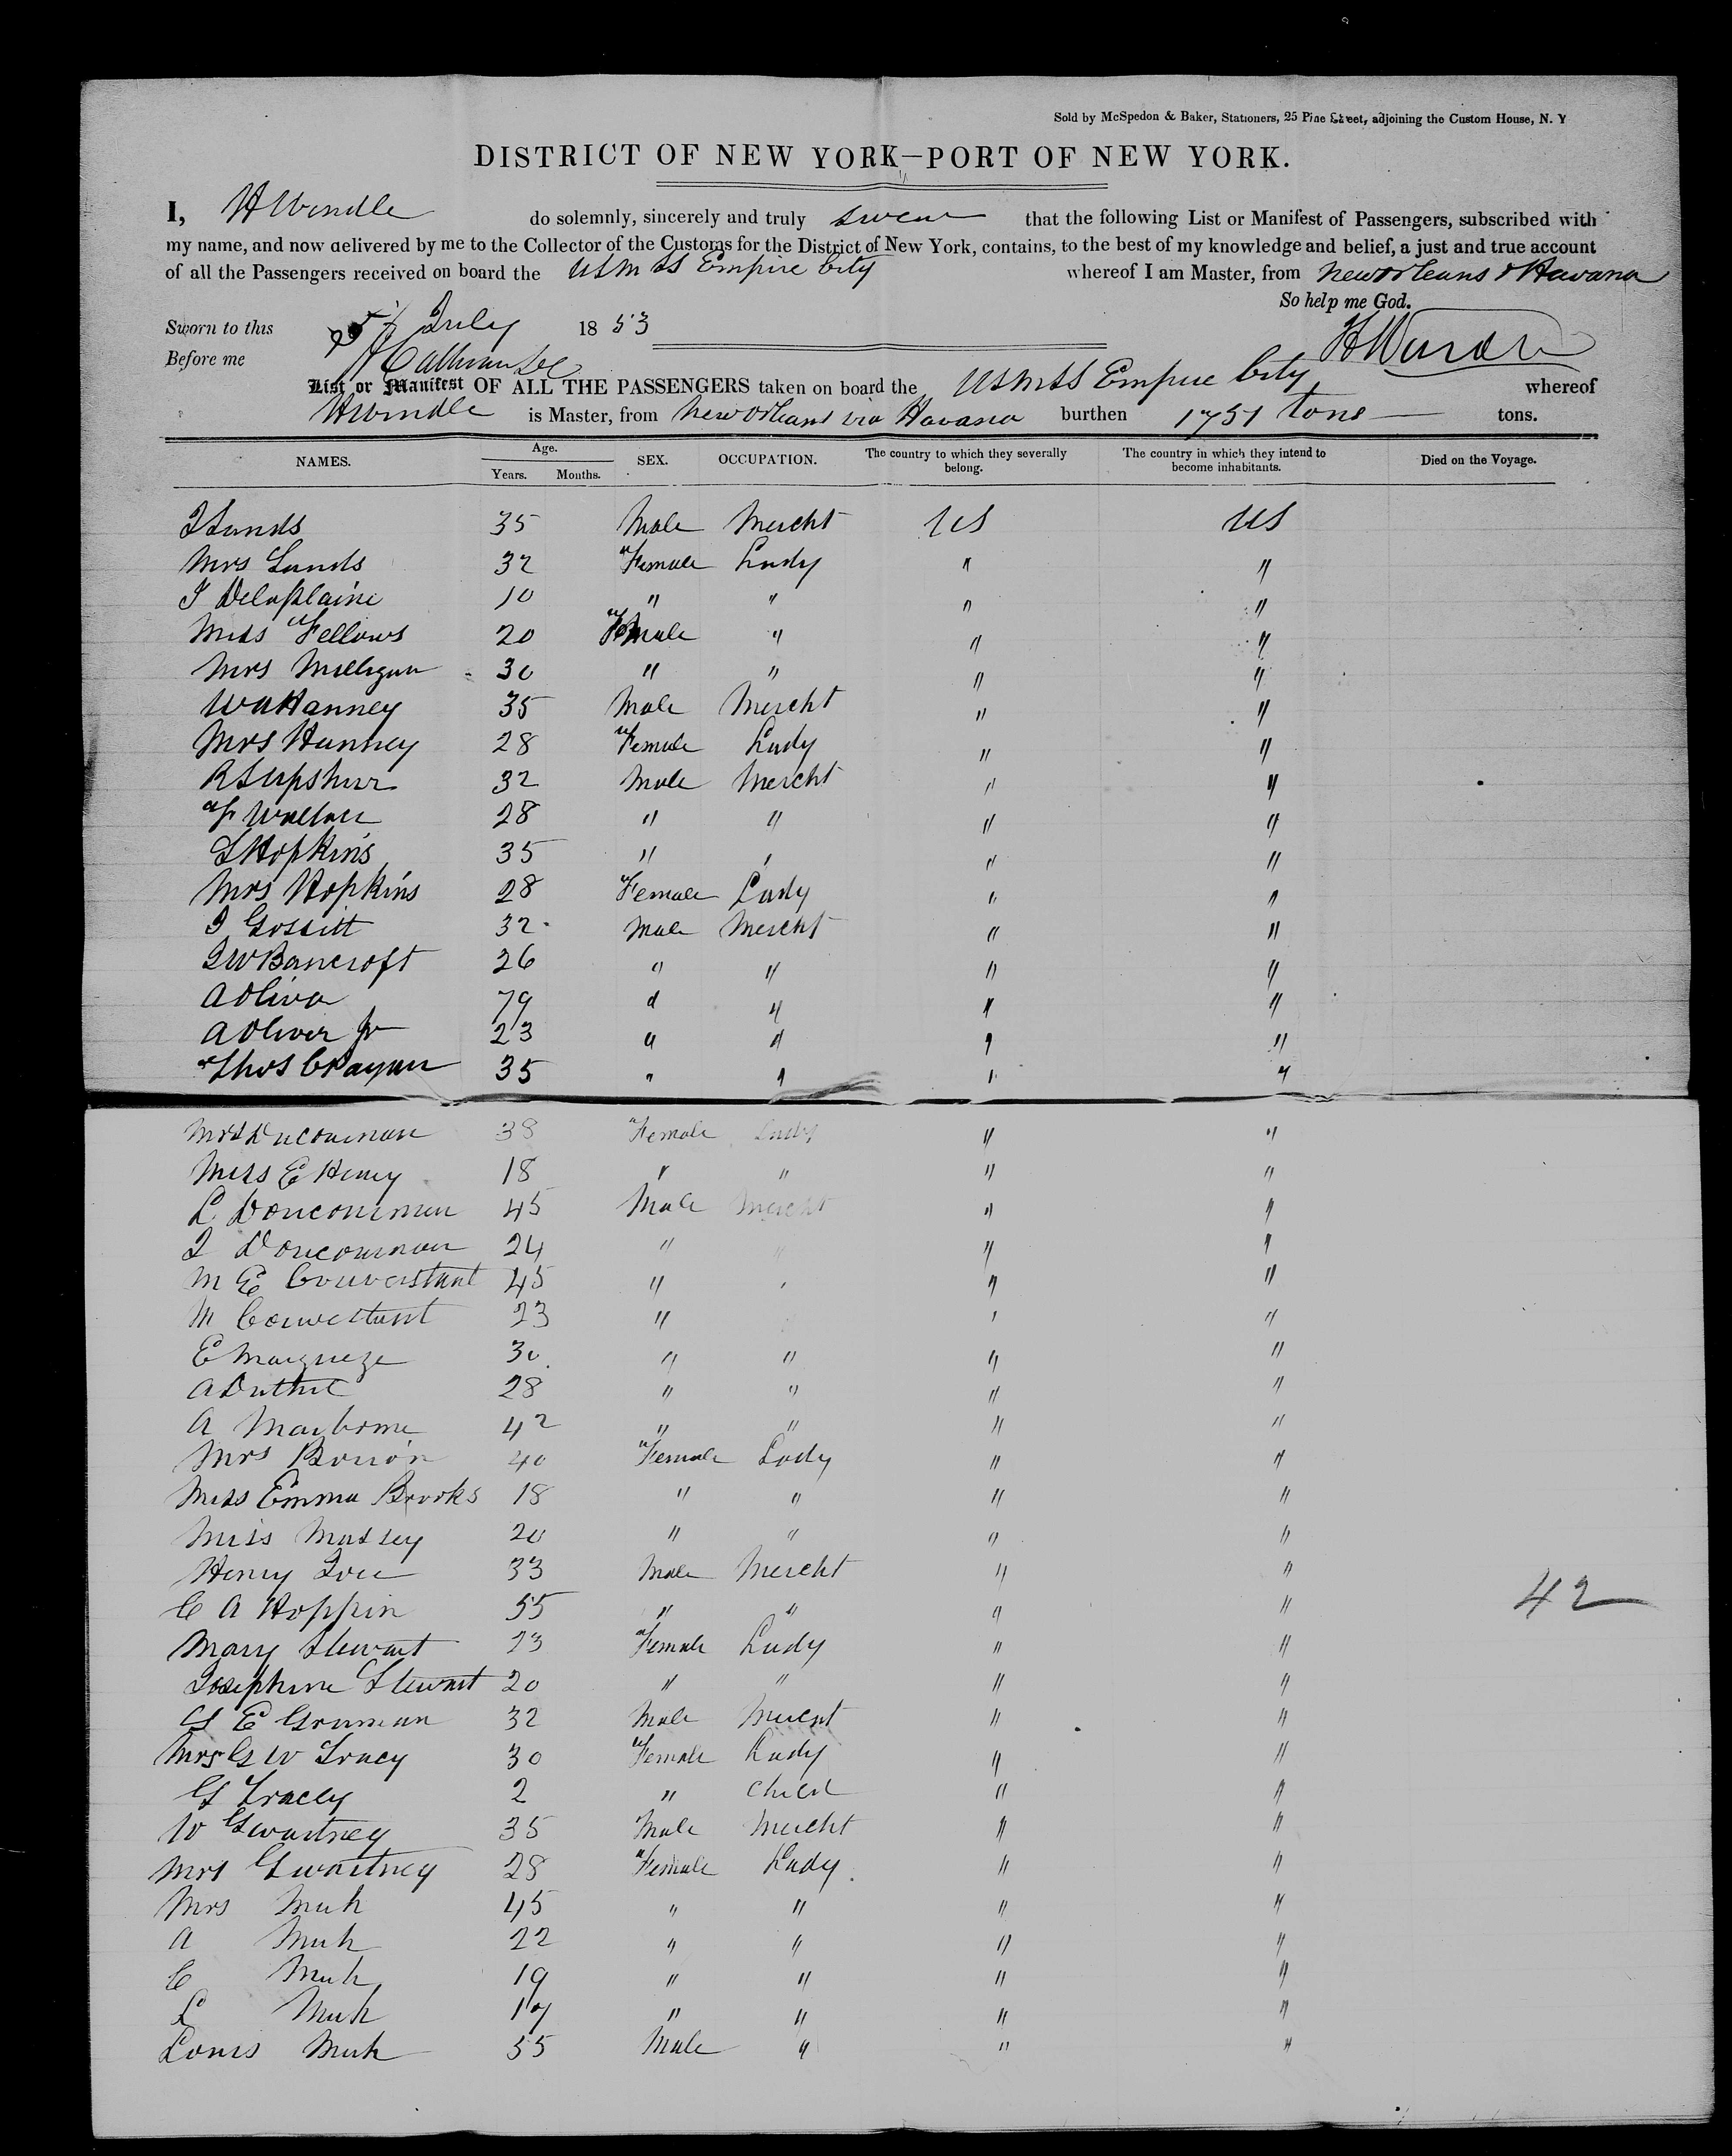 Sold by McSpedon & Baker, Stationers, 25 Pine Street, adjoining the Custom House, N. Y
DISTRICT OF NEW YORK—PORT OF NEW YORK.
I, H Windle do solemnly, sincerely and truly swear that the following List or Manifest of Passengers, subscribed with
my name, and now delivered by me to the Collector of the Customs for the District of New York, contains, to the best of my knowledge and belief, a just and true account
of all the Passengers received on board the USM SS Empire City whereof I am Master, from New Orleans & Havana
So help me God.
Sworn to this July 1853
Before me
H Windle
List or Manifest OF ALL THE PASSENGERS taken on board the USMSS Empire City whereof
H Windle is Master, from New Orleans via Havana burthen 1751 tons — tons.
NAMES. Age. Years. Months. SEX. OCCUPATION. The country to which they severally belong. The country in which they intend to become inhabitants. Died on the Voyage.
35 Male Mercht US US
Mrs Sands 32 Female Lady " "
Delaplaine 10 " " " "
Miss Fellows 20 Female " " "
Mrs Milligan 30 " " " "
W A Hanney 35 Male Mercht " "
Mrs Hanney 28 Female Lady " "
R S Upshur 32 Male Mercht " "
Wallace 28 " " " "
S Hopkins 35 " " " "
Mrs Hopkins 28 Female Lady " "
J Gossitt 32 Male Mercht " "
J W Bancroft 26 " " " "
A Oliva 79 " " " "
A Oliver Jr 23 " " " "
Thos 35 " " " "
Mrs 38 Female Lady " "
Miss E Henry 18 " " " "
L 45 Male Mercht " "
J 24 " " " "
M E 45 " " " "
M 23 " " "
E 30 " " " "
A Duthil 28 " " " "
A 42 " " " "
Mrs 40 Female Lady " "
Miss Emma Brooks 18 " " " "
Miss Massey 20 " " " "
Henry 33 Male Mercht " "
C A Hoppin 55 " " " "
42
Mary Stewart 23 Female Lady " "
Josephine Stewart 20 " " " "
G E Gruman 32 Male Mercht " "
Mrs G W Tracy 30 Female Lady " "
G Tracey 2 " Child " "
W Gwartney 35 Male Mercht " "
Mrs Gwartney 28 Female Lady " "
Mrs Muh 45 " " " "
A Muh 22 " " " "
C Muh 19 " " " "
L Muh 17 " " " "
Louis Muh 55 Male " " "